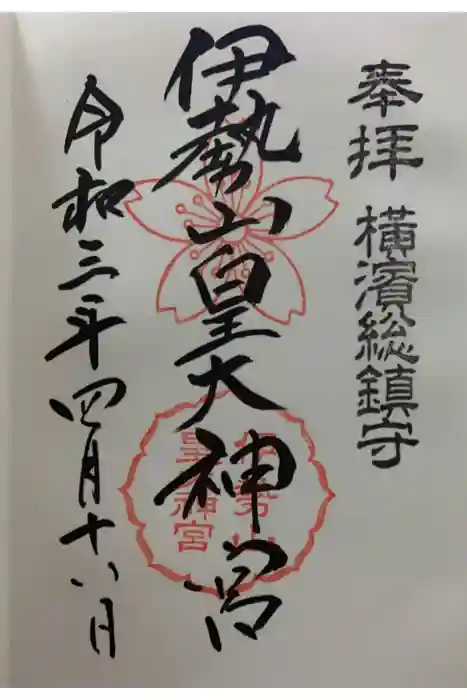 奉拝 横濱総鎮守
伊勢山皇大神宮
令和三年四月十八日
伊勢山
皇大神宮